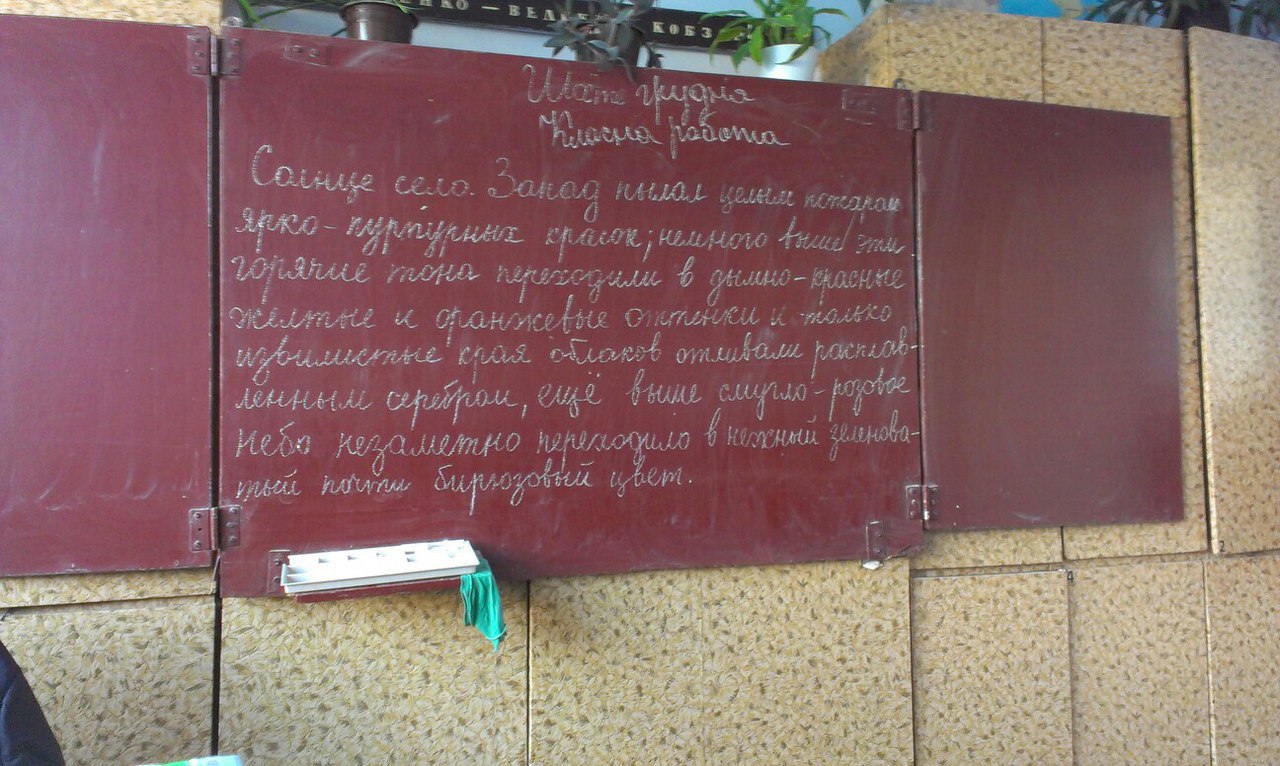 ЕНКО — ВЕЛИК КОБЗ
Шосте грудня
Класна работа
Солнце село. Запад пылал целым пожаром
ярко-пурпурных красок; немного выше эти
горячие тона переходили в дымно-красные
желтые и оранжевые оттенки и только
извилистые края облаков отливали расплав-
ленным серебром, ещё выше смугло-розовое
небо незаметно переходило в нежный зеленова-
тый почти бирюзовый цвет.
2
4